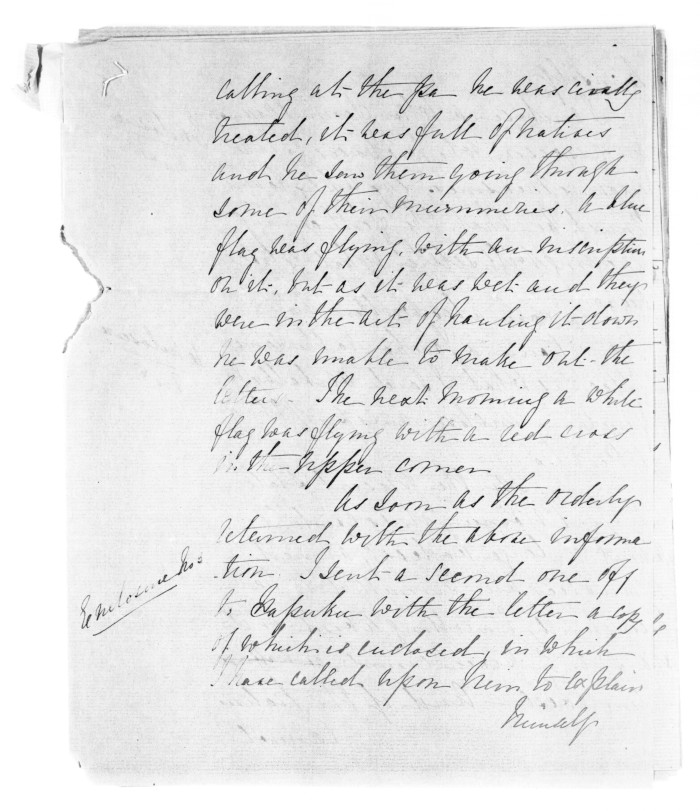 calling at the pa he was civilly
treated, it was full of natives
and he saw them going through
some of their mummeries. a blue
flag was flying, with an inscription
on it, but as it was wet and they
were in the act of hauling it down
he was unable to make out the
letters. The next morning a white
flag was flying with a red cross
in the upper corner
As soon as the orderly
returned with the above informa
tion. I sent a second one off
Enclosure No 2
to Tapuku with the letter a copy
of which is enclosed, in which
I have called upon him to explain
himself